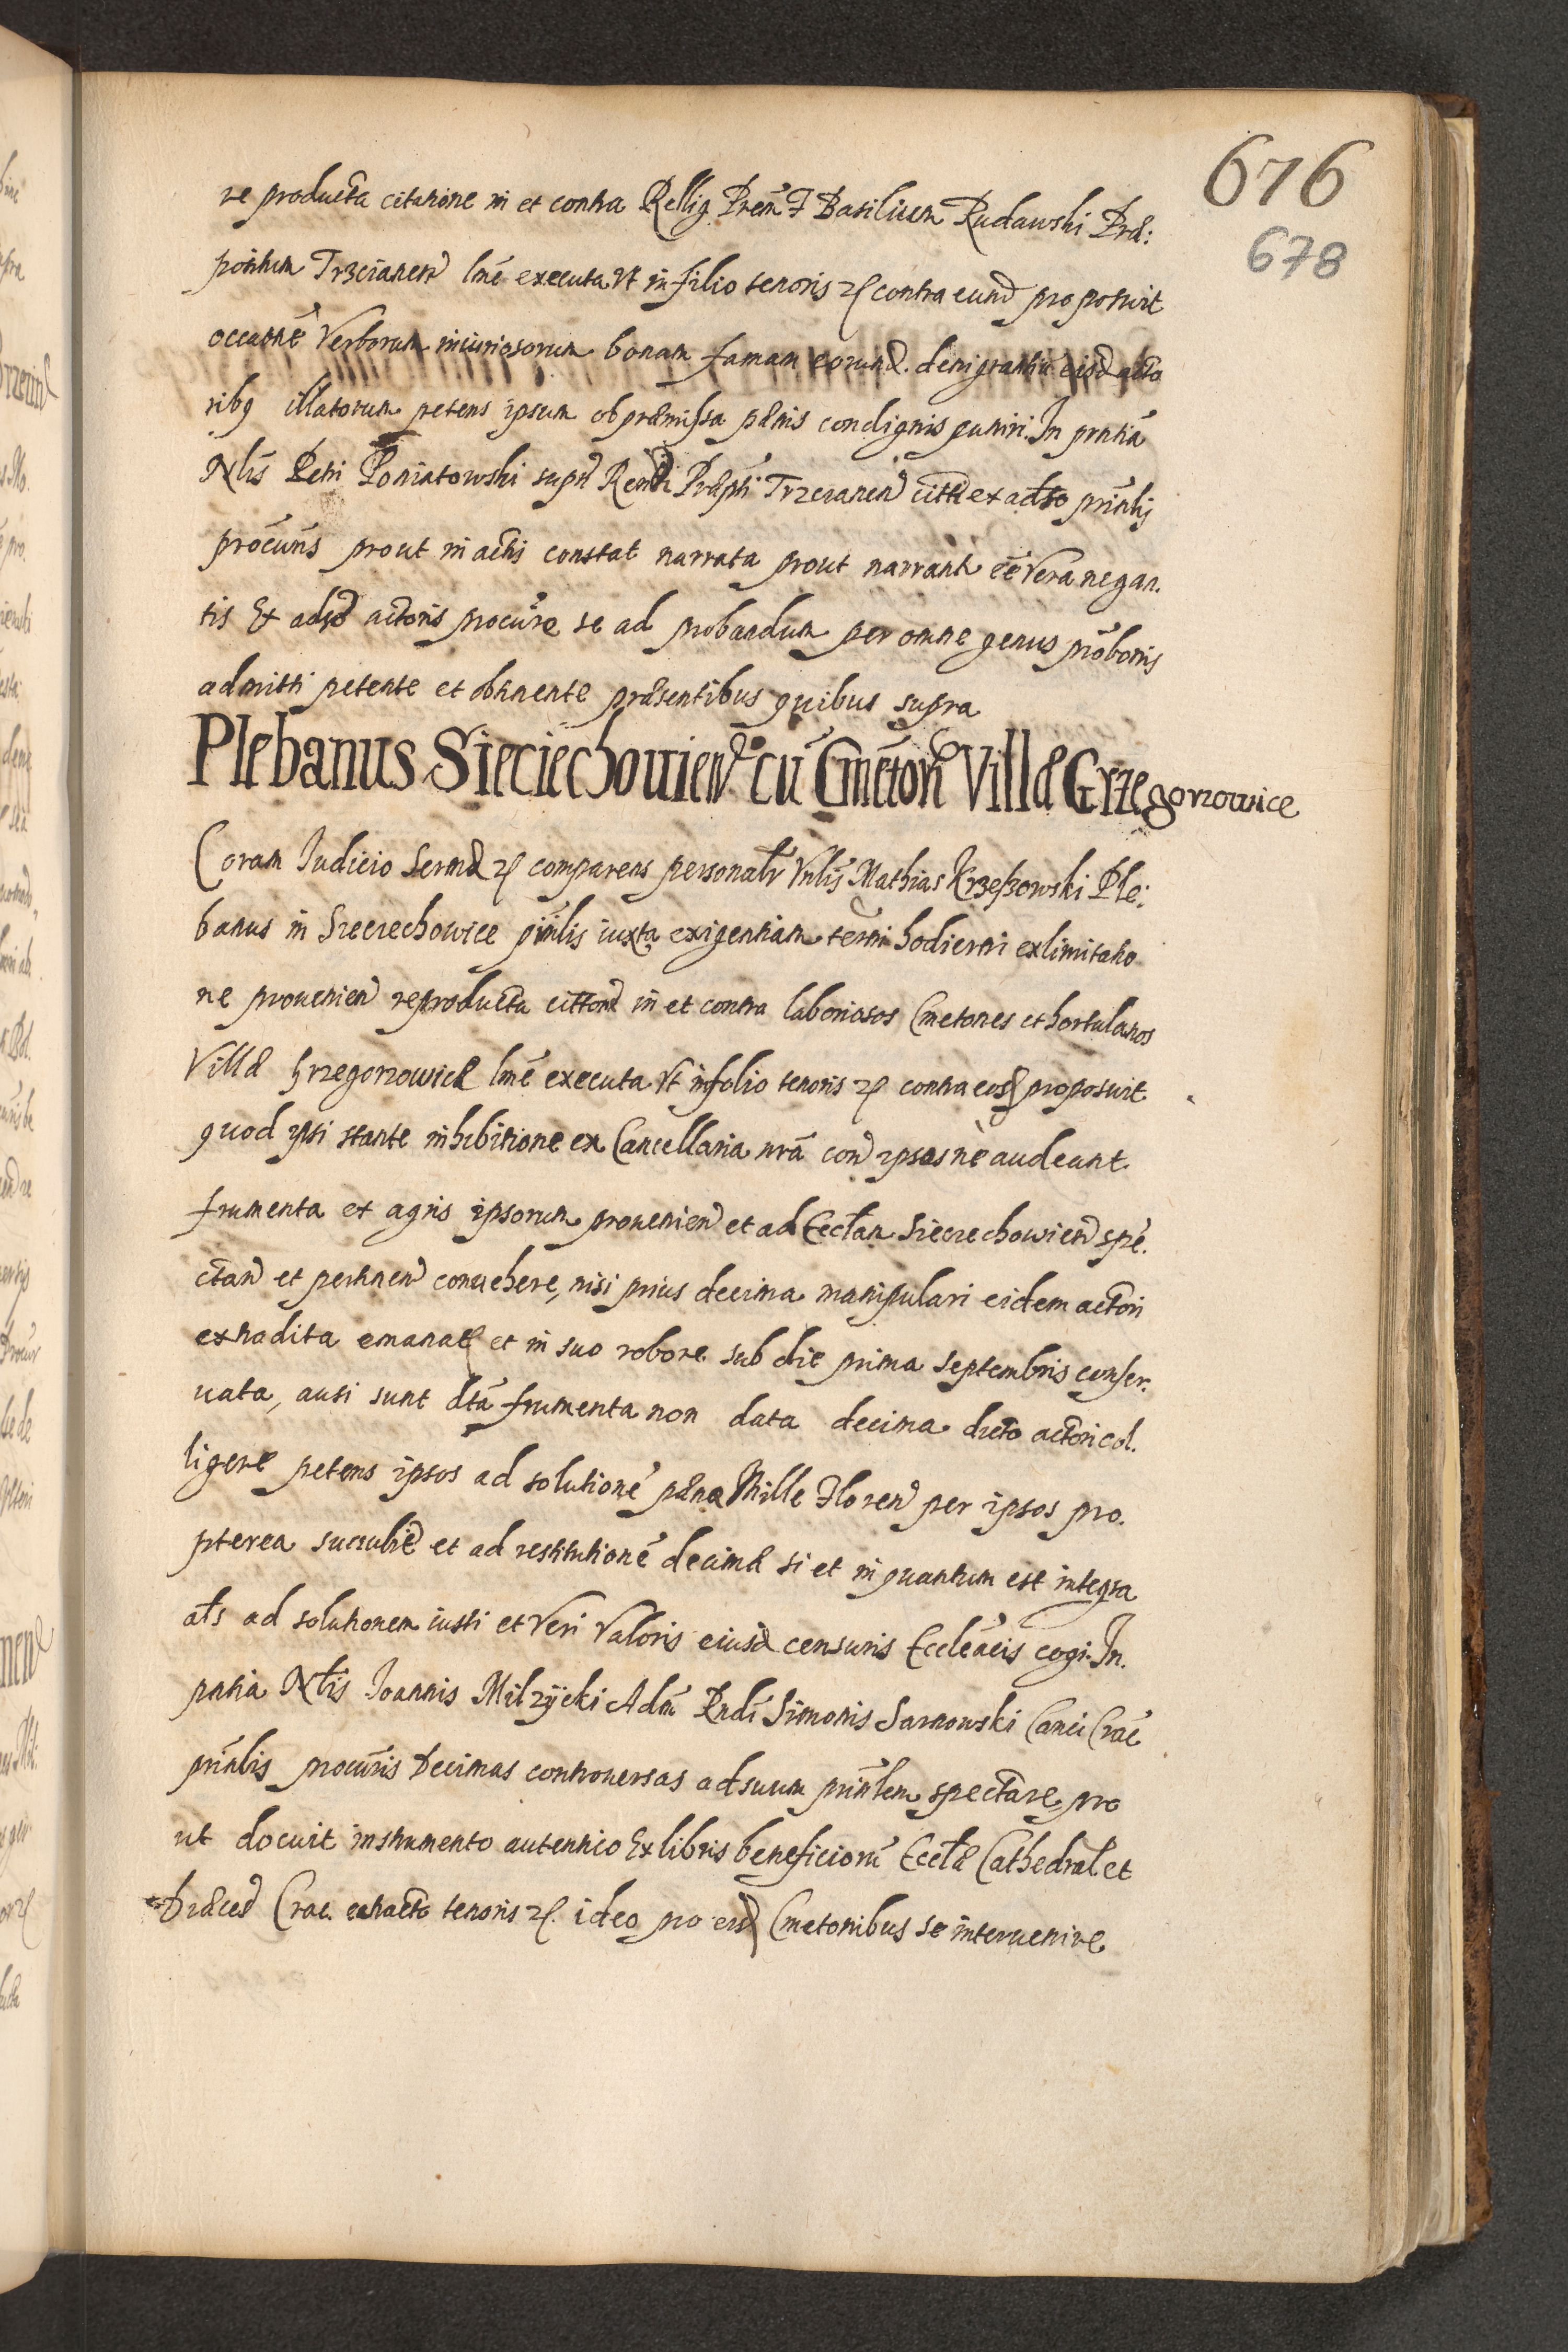 676
678
re producta citatione in et contra Rellig Prem F Basilium Rudawski Præ:
positum Trzcianen lme executa Vt in filio tenoris etc contra eund proposuit
occaõne Verborum iniuriosorum bonam famam eorund. denigrantiũ eisd acto
ribq illatorum petens ipsum ob præmissa pænis condignis puniri. In pñtia
Nlis Petri Poniatowski supr Rendi Præpti Trzcianen citti ex adso prinlis
procuñs prout in actis constat narrata prout narrant eẽ Vera negan.
tis Et adso actoris procure se ad probandum per omne genus probonis
admitti petente et obtinente præsentibus quibus supra
Plebanus Sieciechouien cũ Cmeton Villæ Grzegorzowice
Coram Judicio Sermd etc comparens personalr Vnlis Mathias Krzeszowski Ple:
banus in Sieciechowice pnlis iuxta exigentiam termi hodierni ex limitatio
ne prouenien reproducta cittone in et contra laboriosos Cmetones et hortulanos
Villæ Grzegorzowice lme executa Vt in folio tenoris etc contra eosd proposuit
quod ipsi stante inhibitione ex Cancellaria nrã con ipsos nè audeant
frumenta et agris ipsorum prouenien et ad Ecclam Sieciechowien spe.
ctan et pertinen conuehere, nisi prius decima manipulari eidem actori
extradita emanat et in suo robore sub die prima Septembris conser.
uata, ausi sunt dtã frumenta non data decima dicto actori col.
ligere petens ipsos ad solutionẽ pæna Mille Floren per ipsos pro.
pterea succubie et ad restitutionẽ decimæ si et in quantum est integra
als ad solutionem iusti et Veri Valoris eiusd censuris Eccleãcis cogi. In
pntia Nlis Joannis Milzÿcki Adm Rndi Simonis Sarnowski Canci Crac
prinlis procuris Decimas controuersas ad suum prinlem spectare, pro
ut docuit instrumento autentico Ex libris beneficiorũ Ecclæ Cathedral et
Diæces Crac. extracto tenoris etc. ideo pro eisd Cmetonibus se interuenire